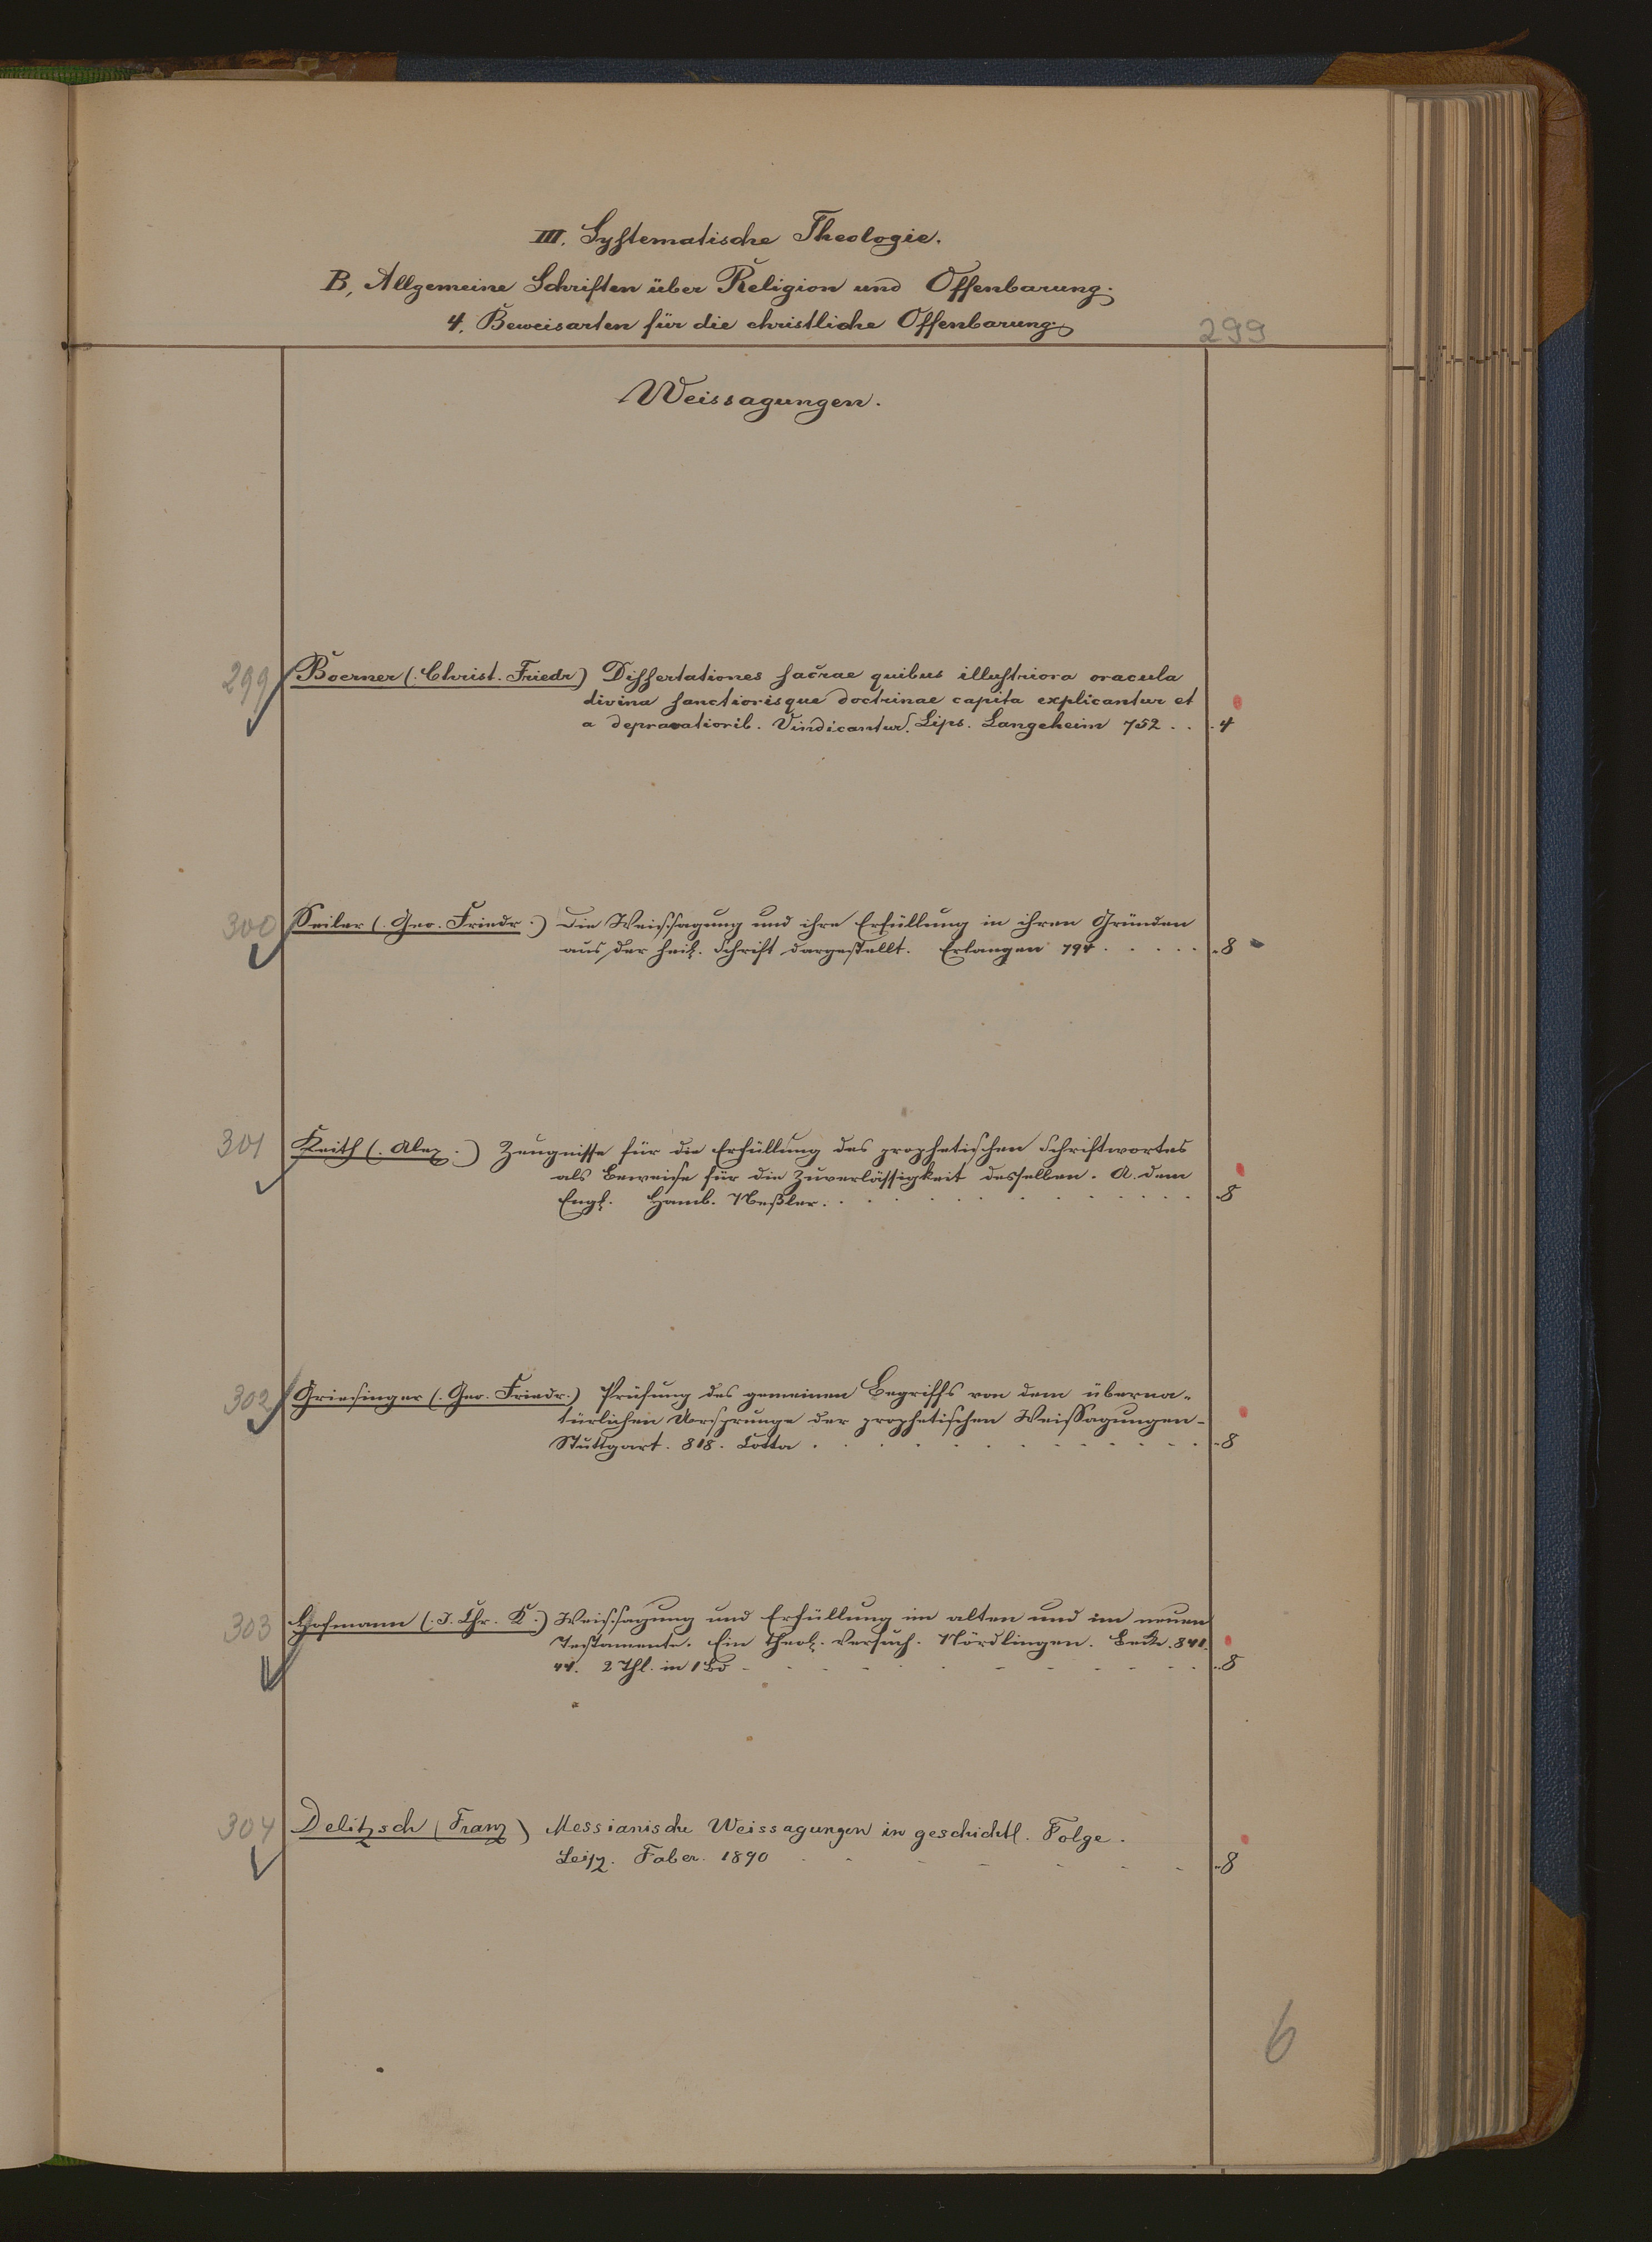 III. Systematische Theologie.
B. Allgemeine Schriften über Religion und Offenbarung.
4. Beweisarten für die christliche Offenbarung.
299
Weissagungen.
299 Boerner (. Christ. Friedr) Dissertationes sacrae quibus illustriora oracula
divina sanctiorisque doctrinae capita explicantur et
a depravationib. Vindicantur. Lips. Langeheim 752 . . . 4
300 Seiler (. Geo. Friedr .) Die Weissagung und ihre Erfüllung in ihren Gründen
aus der heil. Schrift dargestellt. Erlangen 794 . . . . . . 8
301 Keith (. Alex .) Zeugnisse für die Erfüllung des prophetischen Schriftwortes
als Beweise für die Zuverlässigkeit desselben. A. dem
Engl. Hamb. Neßler. . . . . . . . . . . . . 8
302 Griesinger (. Geo. Friedr.) Prüfung des gemeinen Begriffs von dem überna-
türlichen Ursprunge der prophetischen Weissagungen-
Stuttgart. 818. Cotta . . . . . . . . . . . . 8
303 Hofmann (. J. Chr. K .) Weissagung und Erfüllung im alten und im neuen
Testamente. Ein theol. Versuch. Nördlingen. Beck. 841.
44. 2 Thl. in 1 Bd - - - - - - - - - - . 8
304 Delitzsch (Franz) Messianische Weissagungen in geschichtl. Folge.
Leipz. Faber. 1890 - - - - - - - . 8
6